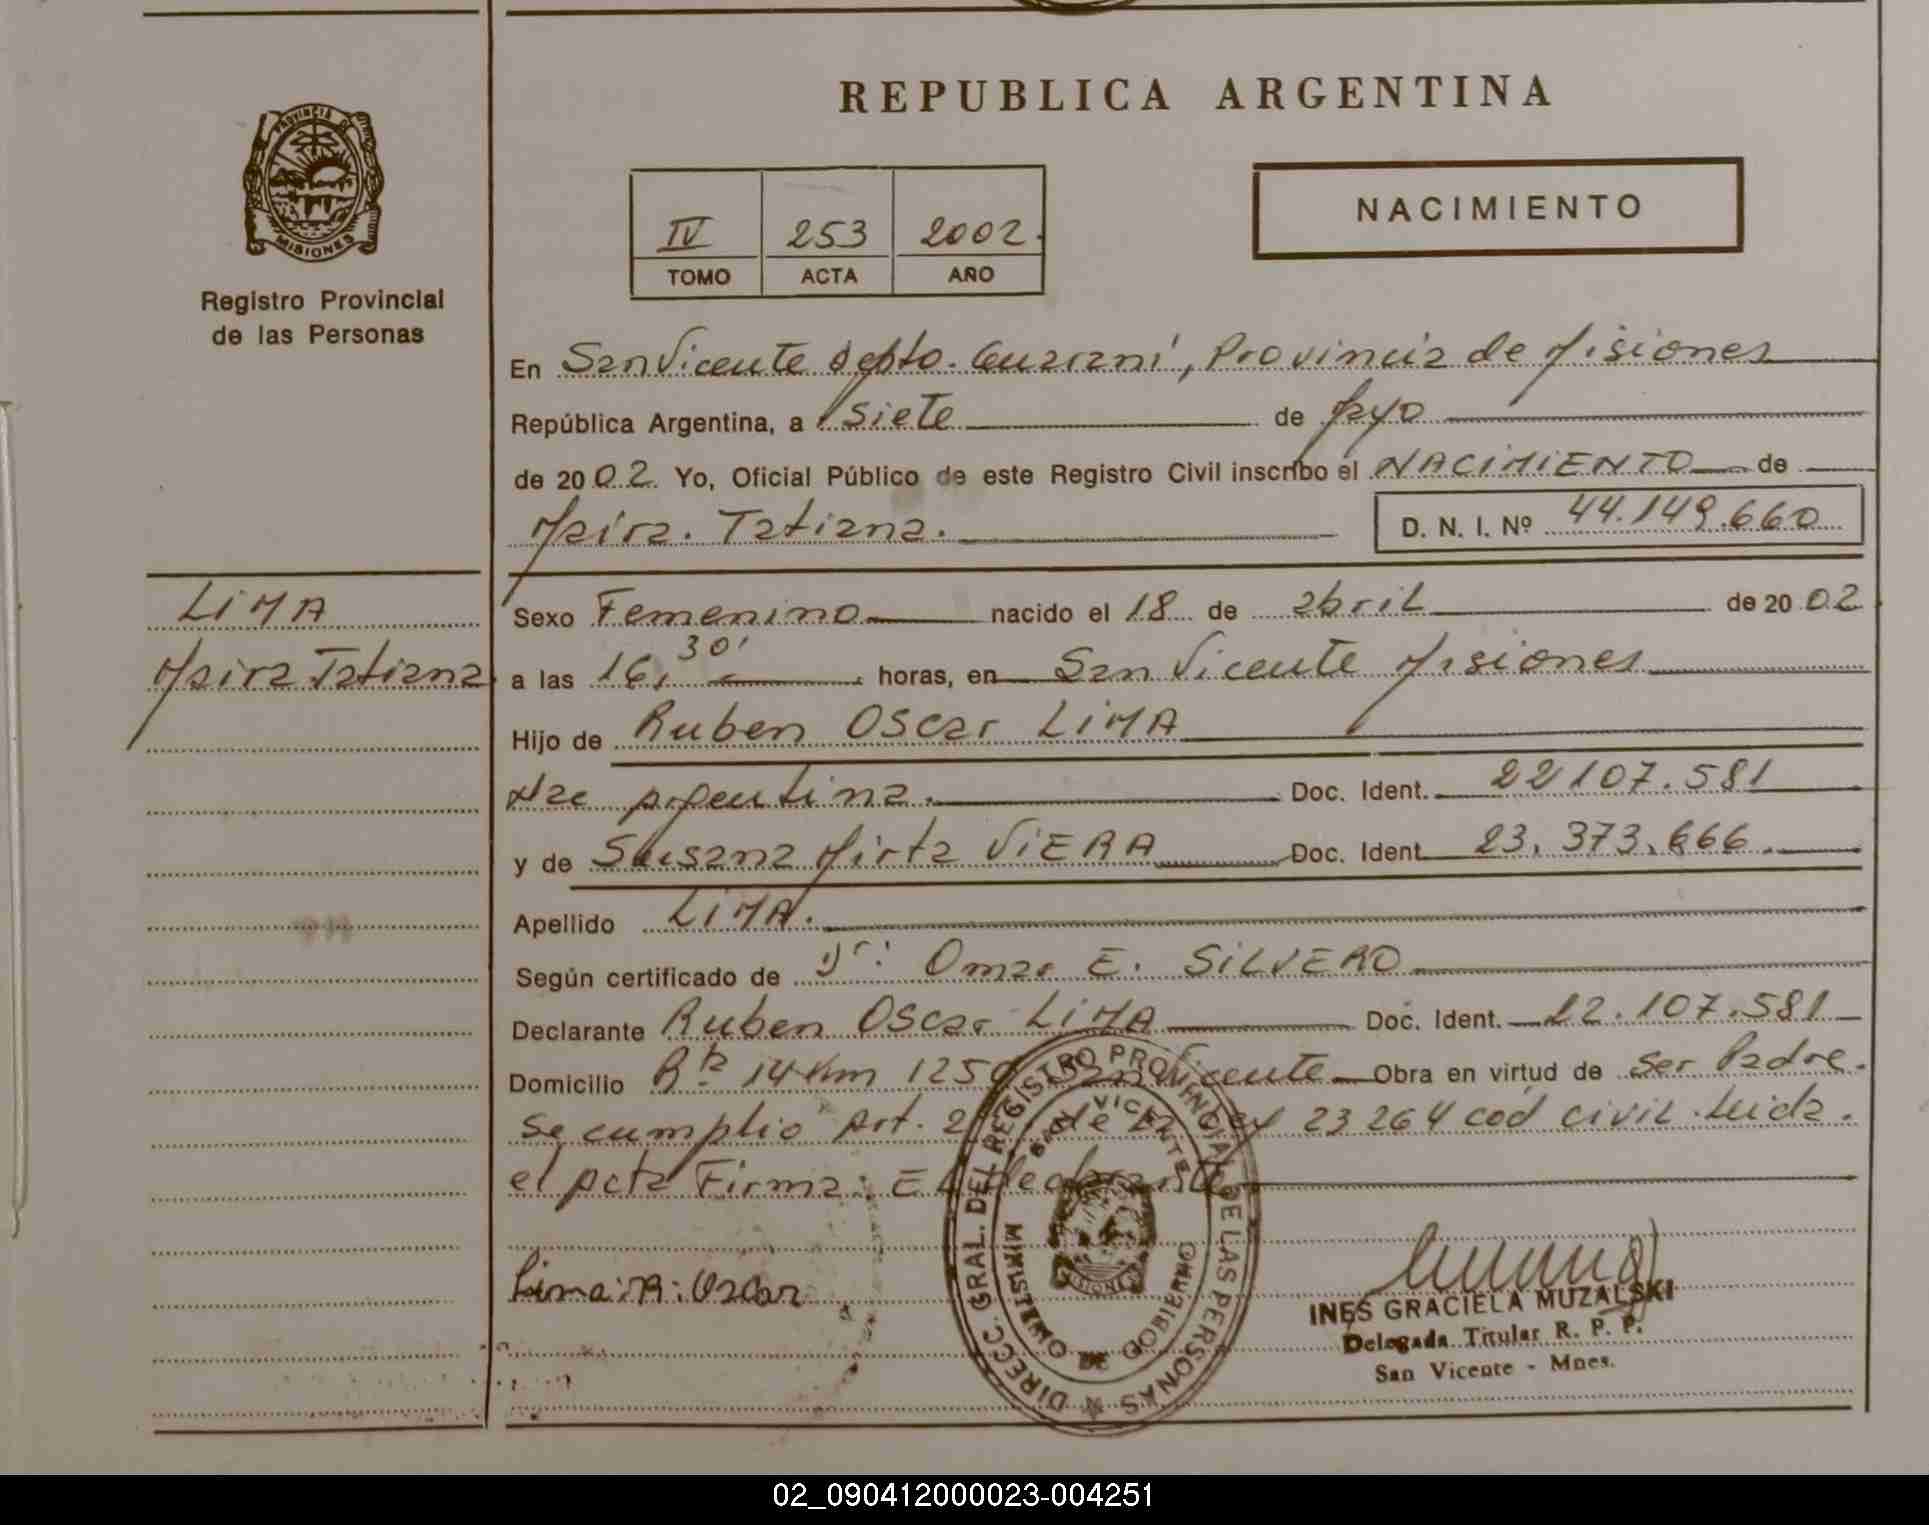 REPUBLICA ARGENTINA
PROVINCIA DE
MISIONES
Registro Provincial
de las Personas
NACIMIENTO
IV 253 2002.
TOMO ACTA AÑO
En San Vicente Dpto. Guaraní, Provincia de Misiones
República Argentina, a siete de Mayo
de 2002. Yo, Oficial Público de este Registro Civil inscribo el NACIMIENTO de
Maira. Tatiana. D. N. I. Nº 44.149.660
LiMA
Maira Tatiana
Sexo Femenino nacido el 18 de abril de 2002
a las 16,30' horas, en San Vicente Misiones
Hijo de Ruben Oscar LiMA
Nac Argentina. Doc. Ident. 22107.581
y de Susana Mirta ViERA Doc. Ident. 23.373.666.
Apellido LiMA.
Según certificado de Dr: Omar E. SiLVERO
Declarante Ruben Oscar LiMA Doc. Ident. 22.107.581
Domicilio Rta 14 Km 1250 San Vicente Obra en virtud de ser Padre.
se cumplio Art. 2 de la Ley 23264 cod civil. Leida.
el Acta Firma: El declarante
Lima: R: Oscar
DIRECC. GRAL. DEL REGISTRO PROVINCIAL DE LAS PERSONAS
SAN VICENTE
MINISTERIO DE GOBIERNO
MISIONES
INES GRACIELA MUZALSKI
Delegada Titular R. P. P.
San Vicente - Mnes.
02_090412000023-004251